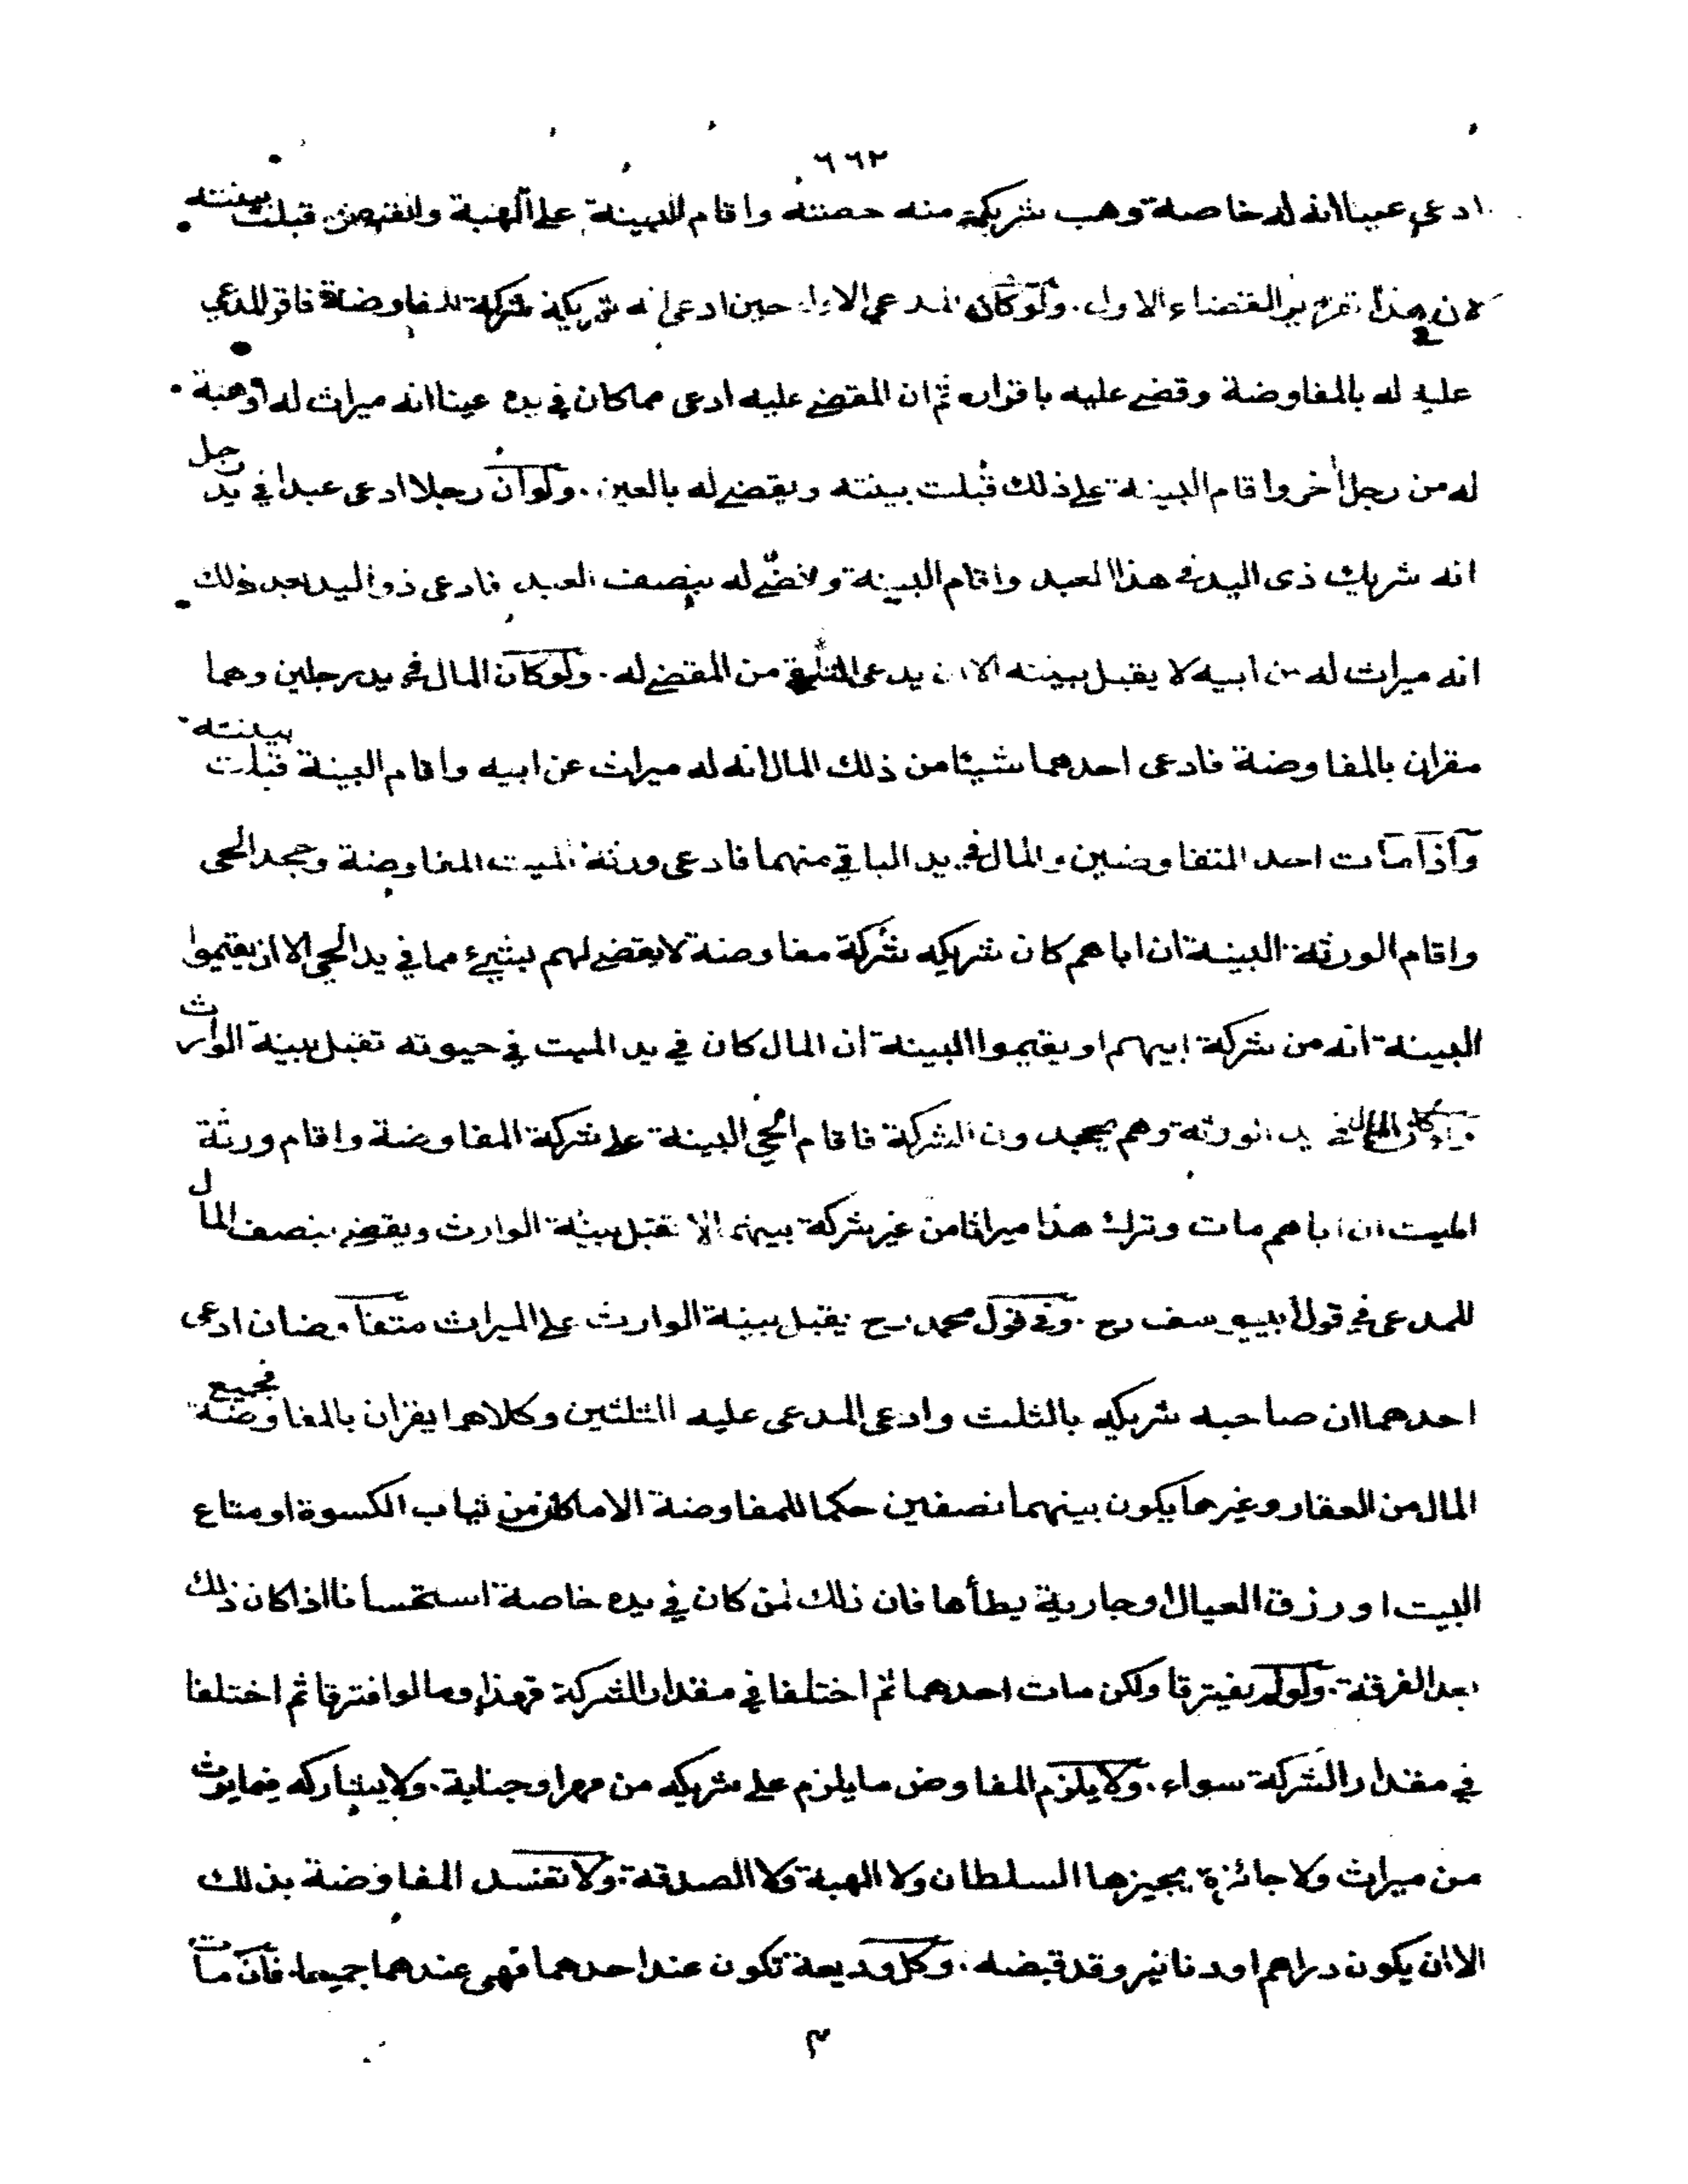 ٦٦٢
ادعى عينا انه له خاصة وهب شريكه منه حصته واقام البينة على الهبة والقبض قبلت بينته
لان هذا تقرير القضاء الاول . ولوكان المدعي الاول حين ادعى انه شريكه شركة المفاوضة فاقر المدعي
عليه له بالمفاوضة وقضے عليه باقراره ثم ان المقضے عليه ادعى مماكان في يده عينا انه ميراث له اوهبة
له من رجل أخر واقام البينة على ذلك قُبلت بينته ويقضے له بالعين . ولوان رجلا ادعى عبدا في يد رجل
انه شريك ذى اليد في هذا العبد واقام البينة وقضے له بنصف العبد فادعى ذو اليد بعد ذلك
انه ميراث له من ابيه لا يقبل بينته الا ان يدعى التلقي من المقضے له . ولوكان المال في يد رجلين وهما
مقران بالمفاوضة فادعى احدهما شيئا من ذلك المال انه له ميراث عن ابيه واقام البينة قبلت بينته
وآذا مات احد المتفاوضين والمال في يد الباقي منهما فادعى ورثة الميت المفاوضة وجحد الحى
واقام الورثة البينة ان اباهم كان شريكه شركة مفاوضة لا يقضے لهم بشيء مما في يد الحي الا ان يقيموا
البينة انه من شركة ابيهم او يقيموا البينة ان المال كان في يد الميت في حيوته تقبل بينة الوارث
ولوكان المال في يد الورثة وهم يجحدون الشركة فاقام الحي البينة على شركة المفاوضة واقام ورثة
الميت ان اباهم مات وترك هذا ميراثا من غير شركة بينهما لا تقبل بينة الوارث ويقضے بنصف المال
للمدعى في قول ابييوسف رح . وفي قول محمد رح يقبل بينة الوارث على الميراث متفاوضان ادعى
احدهما ان صاحبه شريكه بالثلث وادعى المدعى عليه الثلثين وكلاهما يقران بالمفاوضة فجميع
المال من العقار وغيرهما يكون بينهما نصفين حكما للمفاوضة الا ماكان من ثياب الكسوة او متاع
البيت او رزق العيال او جارية يطأها فان ذلك لمن كان في يده خاصة استحسانا اذا كان ذلك
بعد الفرقة . ولولم يفترقا ولكن مات احدهما ثم اختلفا في مقدار الشركة فهذا وما لوافترقا ثم اختلفا
في مقدار الشركة سواء . ولا يلزم المفاوض ما يلزم على شريكه من مهر او جناية . ولا يشاركه فيما يرث
من ميراث ولا جائزة يجيزها السلطان ولا الهبة ولا الصدقة . ولا تفسد المفاوضة بذلك
الا ان يكون دراهم او دنانير وقد قبضه . وكل وديعة تكون عند احدهما فهى عندهما جميعا . فان مات